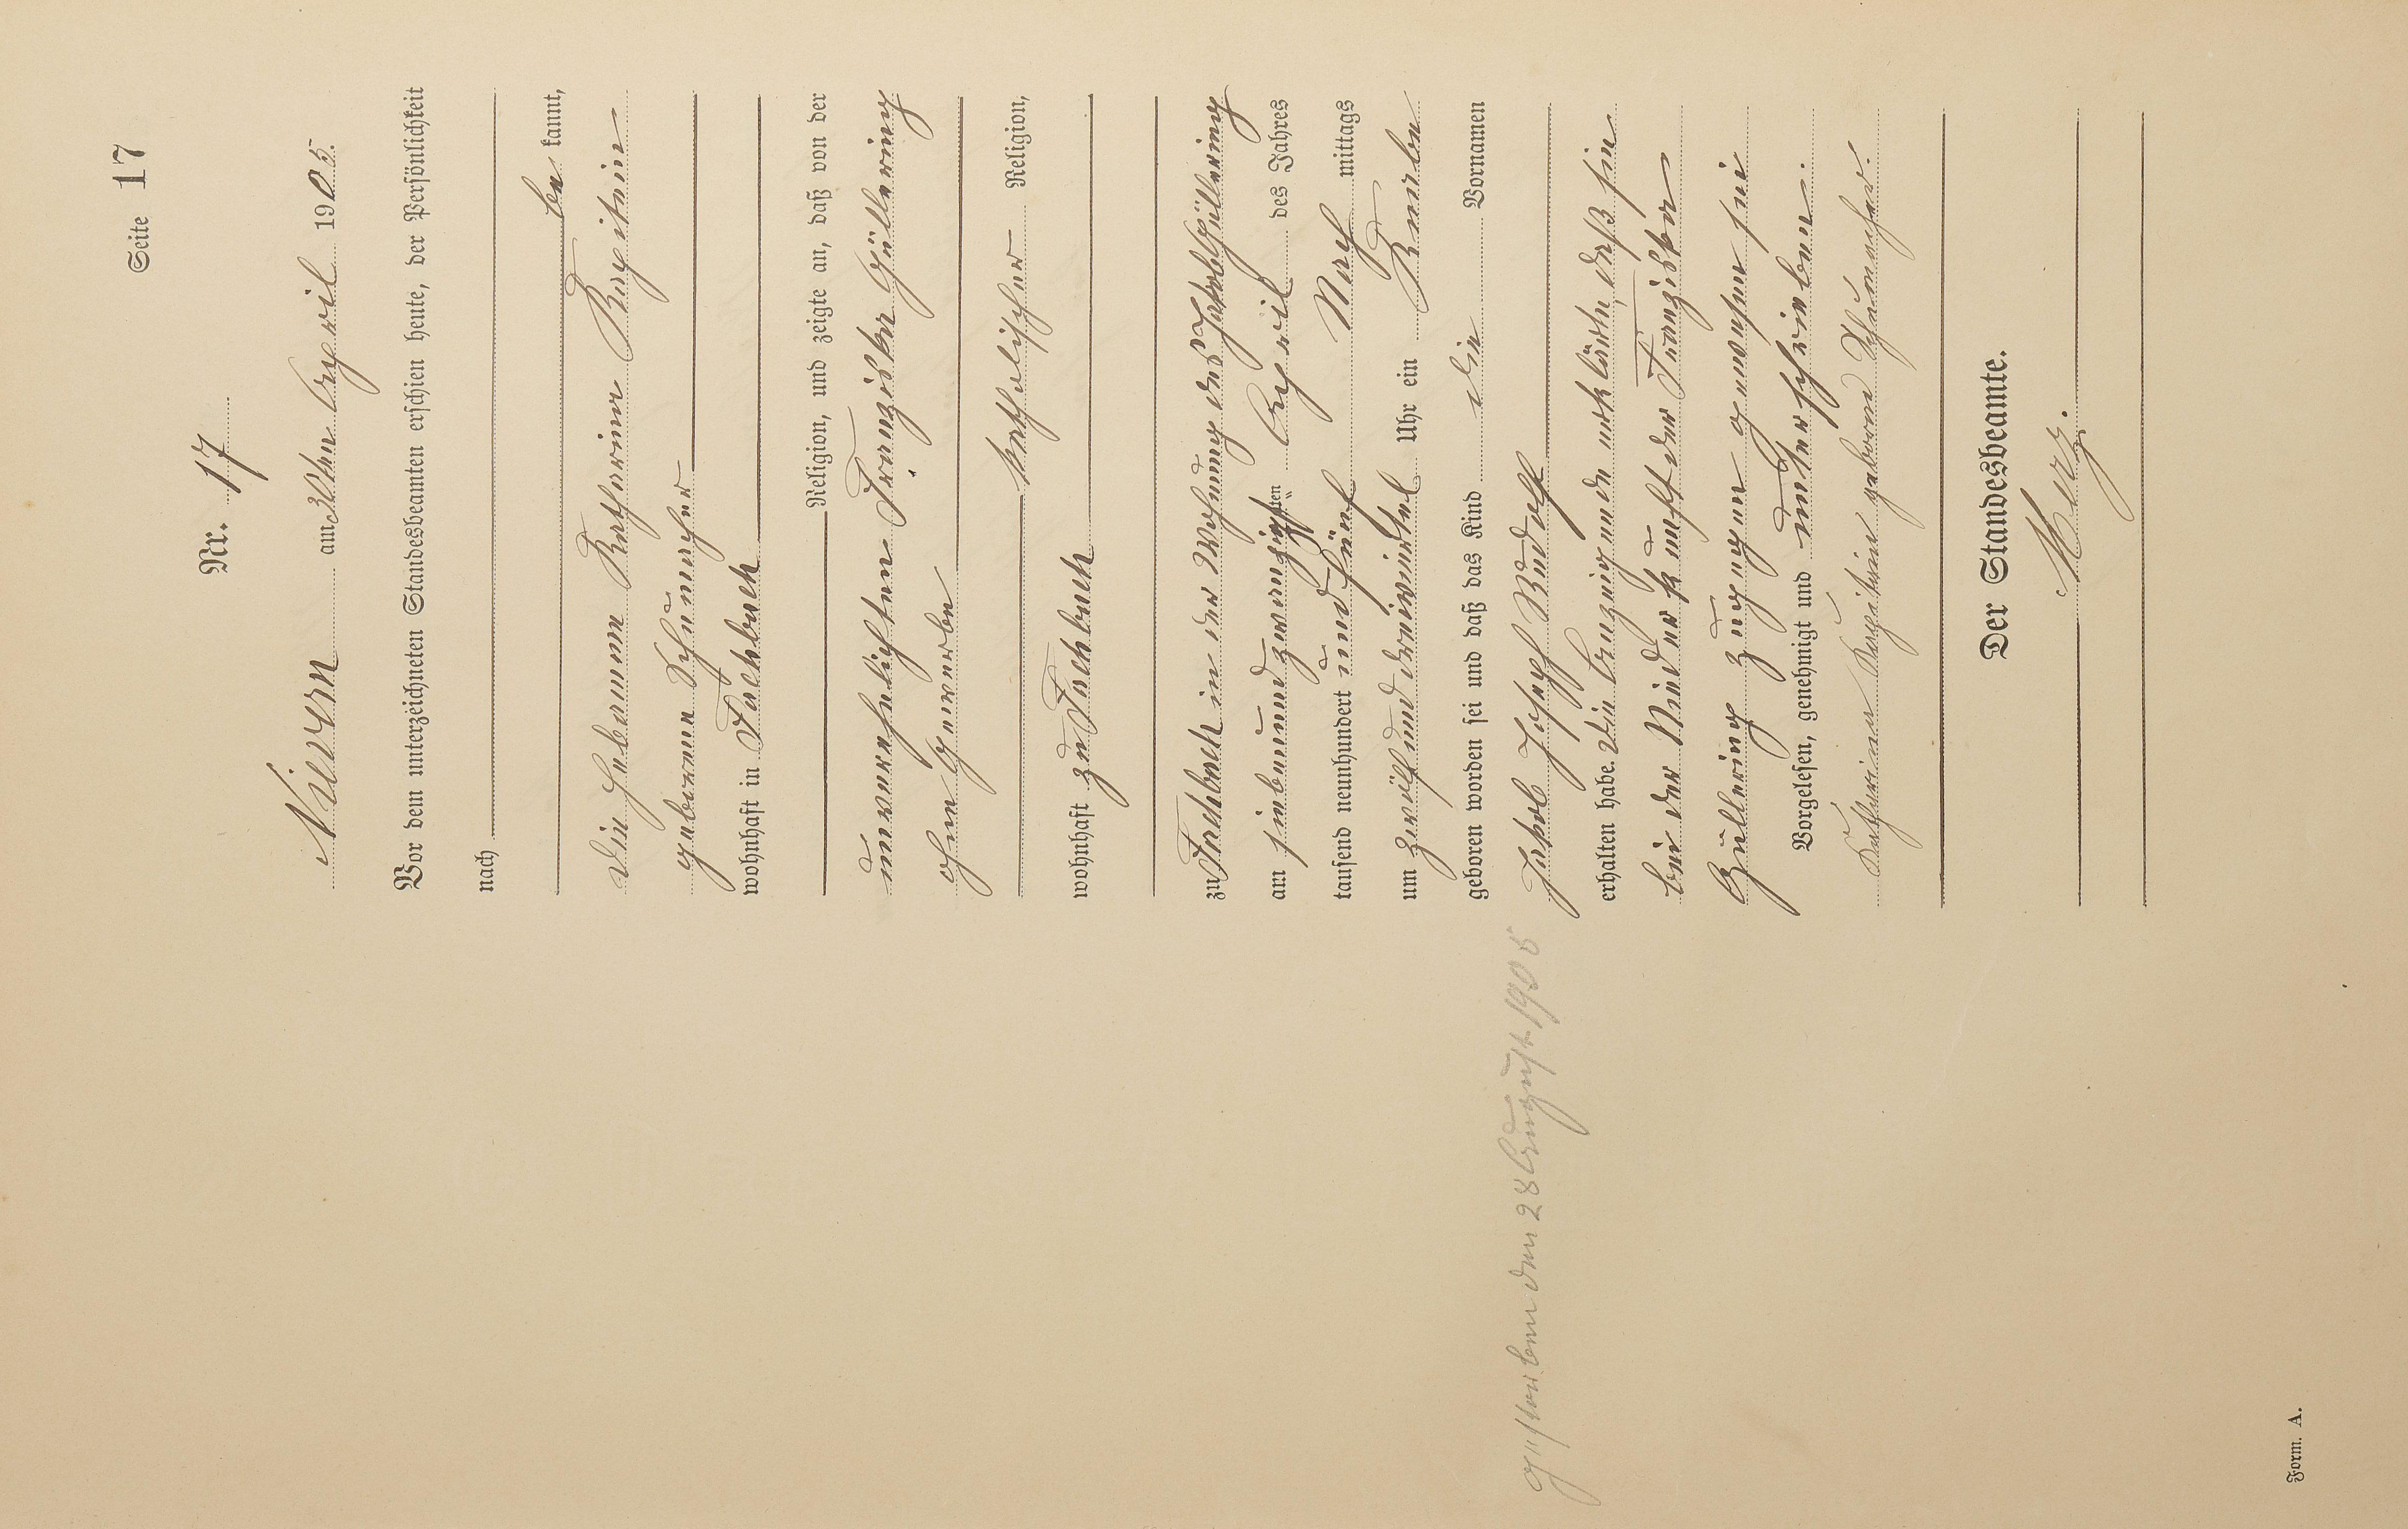 Seite 17
Nr. 17
Nievern am 30ten April 1905.
Vor dem unterzeichneten Standesbeamten erschien heute, der Persönlichkeit
nach
be kannt,
die Hebamme Katharina Kapitain
geborene Schumacher
wohnhaft in Fachbach
Religion, und zeigte an, daß von der
unverehelichten Franziska Güllering
ohne Gewerbe
katholischer Religion,
wohnhaft zu Fachbach
zu Fachbach in der Wohnung des Jakob Güllering
am siebenundzwanzigsten April des Jahres
tausend neunhundert und fünf Nach mittags
um zwölf und dreiviertel Uhr ein Knabe
geboren worden sei und daß das Kind die Vornamen
Jakob Joseph Rudolf
erhalten habe. Die Anzeigende erklärte, daß sie
bei der Niederkunft der Franziska
Güllering zugegen gewesen sei
Vorgelesen, genehmigt und unterschrieben.
Katharina Kapitain geborne Schumacher.
Der Standesbeamte.
gestorben den 28 August 1905
Form. A.